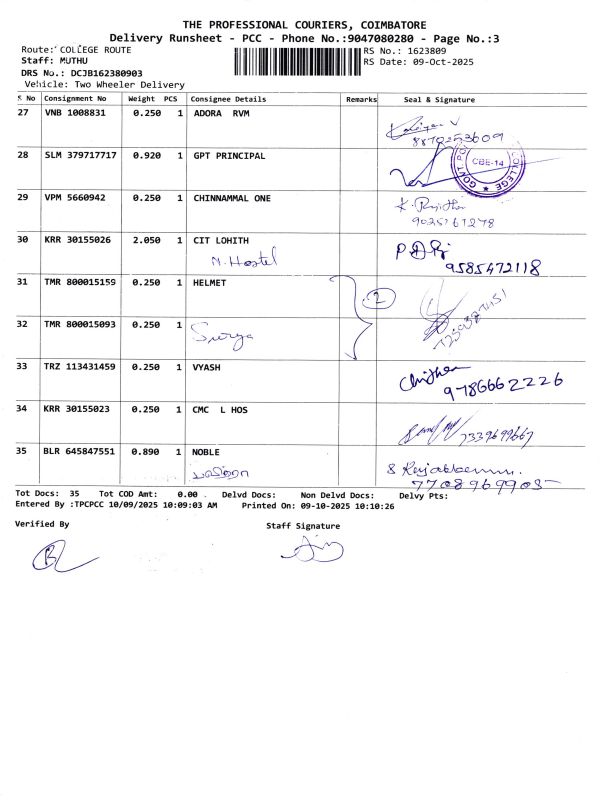 THE PROFESSIONAL COURIERS, COIMBATORE
Delivery Runsheet - PCC - Phone No.:9047080280 - Page No.:3
Route: COLLEGE ROUTE
RS No.: 1623809
Staff: MUTHU
RS Date: 09-Oct-2025
DRS No.: DCJB162380903
Vehicle: Two Wheeler Delivery
S No Consignment No Weight PCS Consignee Details Remarks Seal & Signature
27 VNB 1008831 0.250 1 ADORA RVM
28 SLM 379717717 0.920 1 GPT PRINCIPAL
CBE-14
COLLEGE
GOVT.
29 VPM 5660942 0.250 1 CHINNAMMAL ONE
30 KRR 30155026 2.050 1 CIT LOHITH
M. Hostel
9585472118
31 TMR 800015159 0.250 1 HELMET
2
32 TMR 800015093 0.250 1
Surya
33 TRZ 113431459 0.250 1 VYASH
9786662226
34 KRR 30155023 0.250 1 CMC L HOS
7339699667
35 BLR 645847551 0.890 1 NOBLE
7708969905
Tot Docs: 35 Tot COD Amt: 0.00 Delvd Docs: Non Delvd Docs: Delvy Pts:
Entered By :TPCPCC 10/09/2025 10:09:03 AM Printed On: 09-10-2025 10:10:26
Verified By
Staff Signature